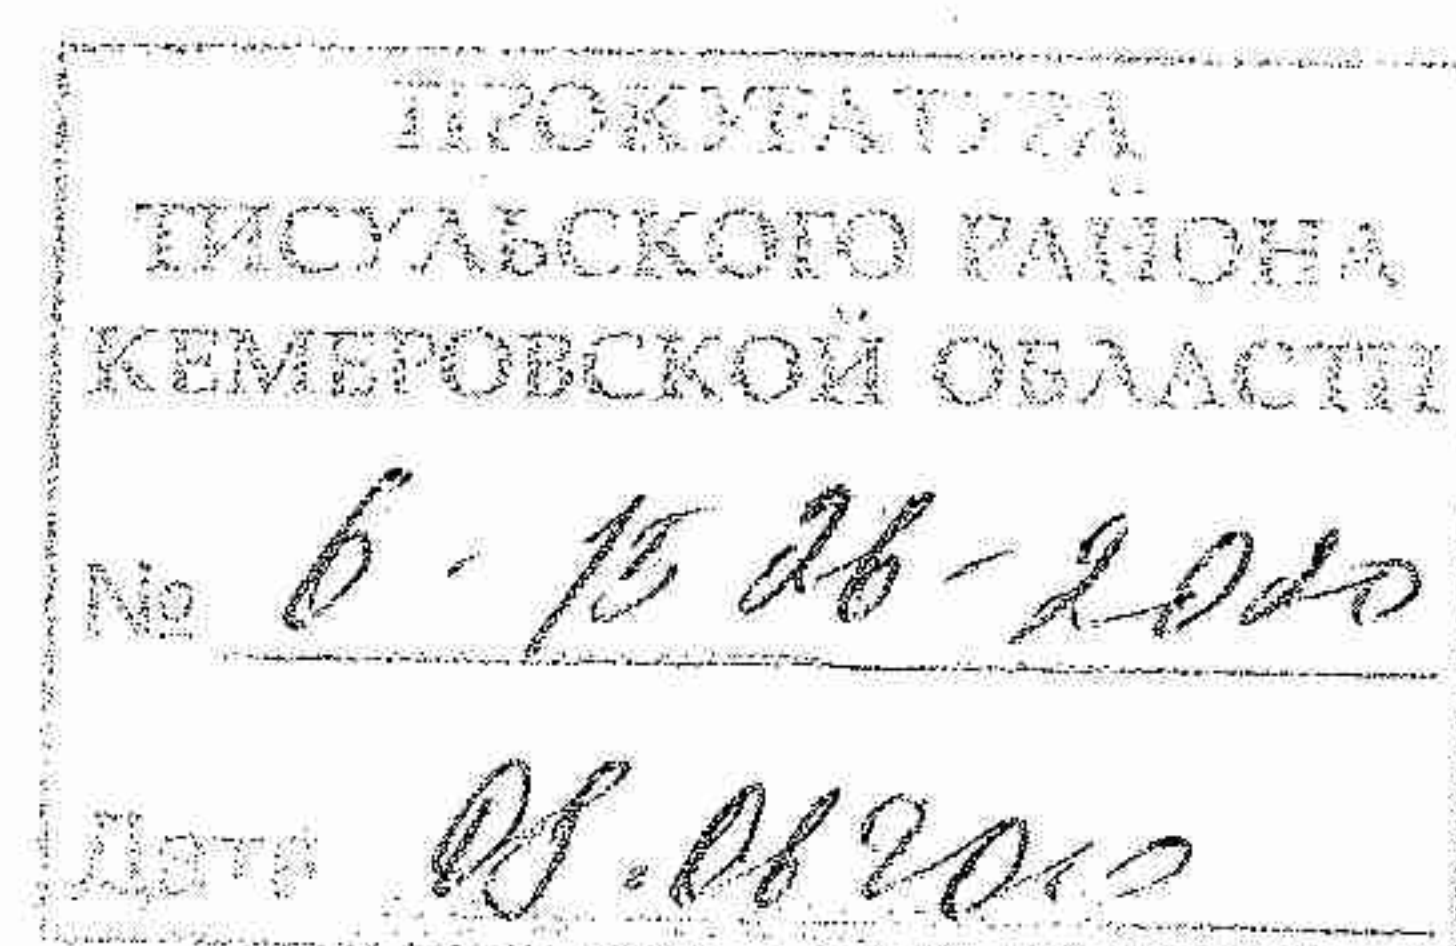 ПРОКУРАТУРА
ТИСУЛЬСКОГО РАЙОНА
КЕМЕРОВСКОЙ ОБЛАСТИ
№ 6-15 26-2020
Дата 08.06 2020